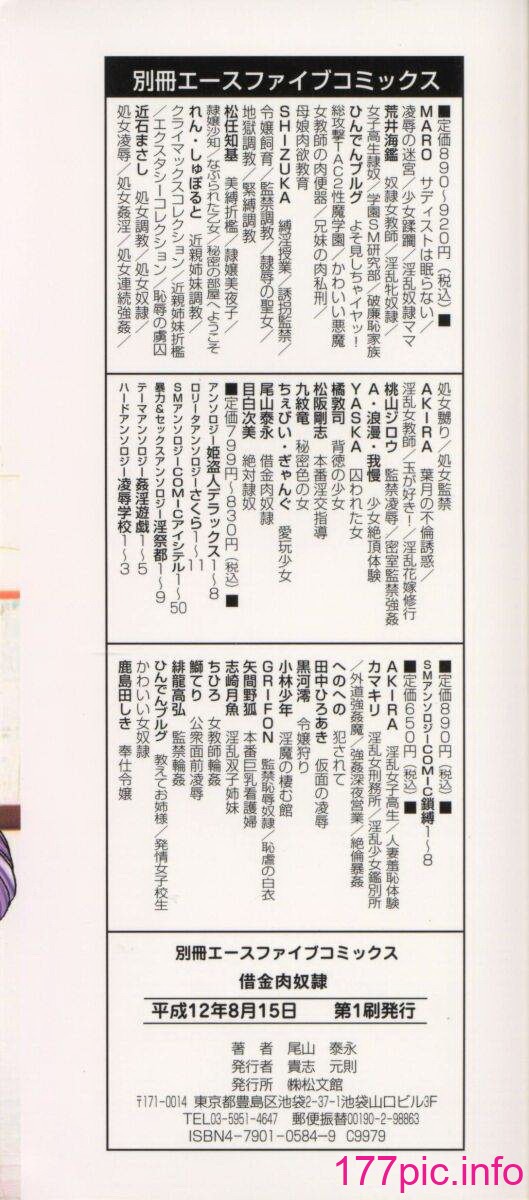 別冊エースファイブコミックス
■定価890〜920円（税込）■
MARO サディストは眠らない／
凌辱の迷宮／少女蹂躙／淫乱奴隷ママ
荒井海鑑 奴隷女教師／淫乱牝奴隷／
女子高生隷奴／学園SM研究部／破廉恥家族
ひんでんブルグ よそ見しちゃイヤッ！
総攻撃TAC2性魔学園／かわいい悪魔
女教師の肉便器／兄妹の肉私刑／
母娘肉欲教育
SHIZUKA 縛淫授業／誘拐監禁／
令嬢飼育／監禁調教／隷辱の聖女／
地獄調教／緊縛調教
松任知基 美縛折檻／隷嬢美夜子／
隷嬢沙知／なぶられた乙女／秘密の部屋へようこそ
れん・しゅぽると 近親姉妹調教／
クライマックスコレクション／近親姉妹折檻
／エクスタシーコレクション／恥辱の虜囚
近石まさし 処女調教／処女奴隷／
処女凌辱／処女姦淫／処女連続強姦／
処女嬲り／処女監禁
AKIRA 葉月の不倫誘惑／
淫乱女教師／玉が好き！／淫乱花嫁修行
桃山ジロウ 監禁凌辱／密室監禁強姦
A・浪漫・我慢 少女絶頂体験
YASKA 囚われた女
橘敦司 背徳の少女
松阪剛志 本番淫交指導
九紋竜 秘密色の女
ちぇびい・ぎゃんぐ 愛玩少女
尾山泰永 借金肉奴隷
目白次美 絶対隷奴
■定価799円〜830円（税込）■
アンソロジー姫盗人デラックス1〜8
ロリータアンソロジーさくら1〜11
SMアンソロジーCOMICアイシテル1〜50
暴力&セックスアンソロジー淫祭都1〜9
テーマアンソロジー姦淫遊戯1〜5
ハードアンソロジー凌辱学校1〜3
■定価890円（税込）■
SMアンソロジーCOMIC鎖縛1〜8
■定価650円（税込）■
AKIRA 淫乱女子高生／人妻羞恥体験
カマキリ 淫乱女刑務所／淫乱少女鑑別所
／外道強姦魔／強姦深夜営業／絶倫暴姦
へのへの 犯されて
田中ひろあき 仮面の凌辱
黒河澪 令嬢狩り
小林少年 淫魔の棲む館
GRIFON 監禁恥辱奴隷／恥虐の白衣
矢間野狐 本番巨乳看護婦
志崎月魚 淫乱双子姉妹
ちひろ 女教師輪姦
鰤てり 公衆面前凌辱
緋龍高弘 監禁輪姦
ひんでんブルグ 教えてお姉様／発情女子校生
かわいい女奴隷
鹿島田しき 奉仕令嬢
別冊エースファイブコミックス
借金肉奴隷
平成12年8月15日 第1刷発行
著者 尾山 泰永
発行者 貴志 元則
発行所 ㈱松文館
〒171-0014 東京都豊島区池袋2-37-1池袋山口ビル3F
TEL03-5951-4647 郵便振替00190-2-98863
ISBN4-7901-0584-9 C9979
177pic.info